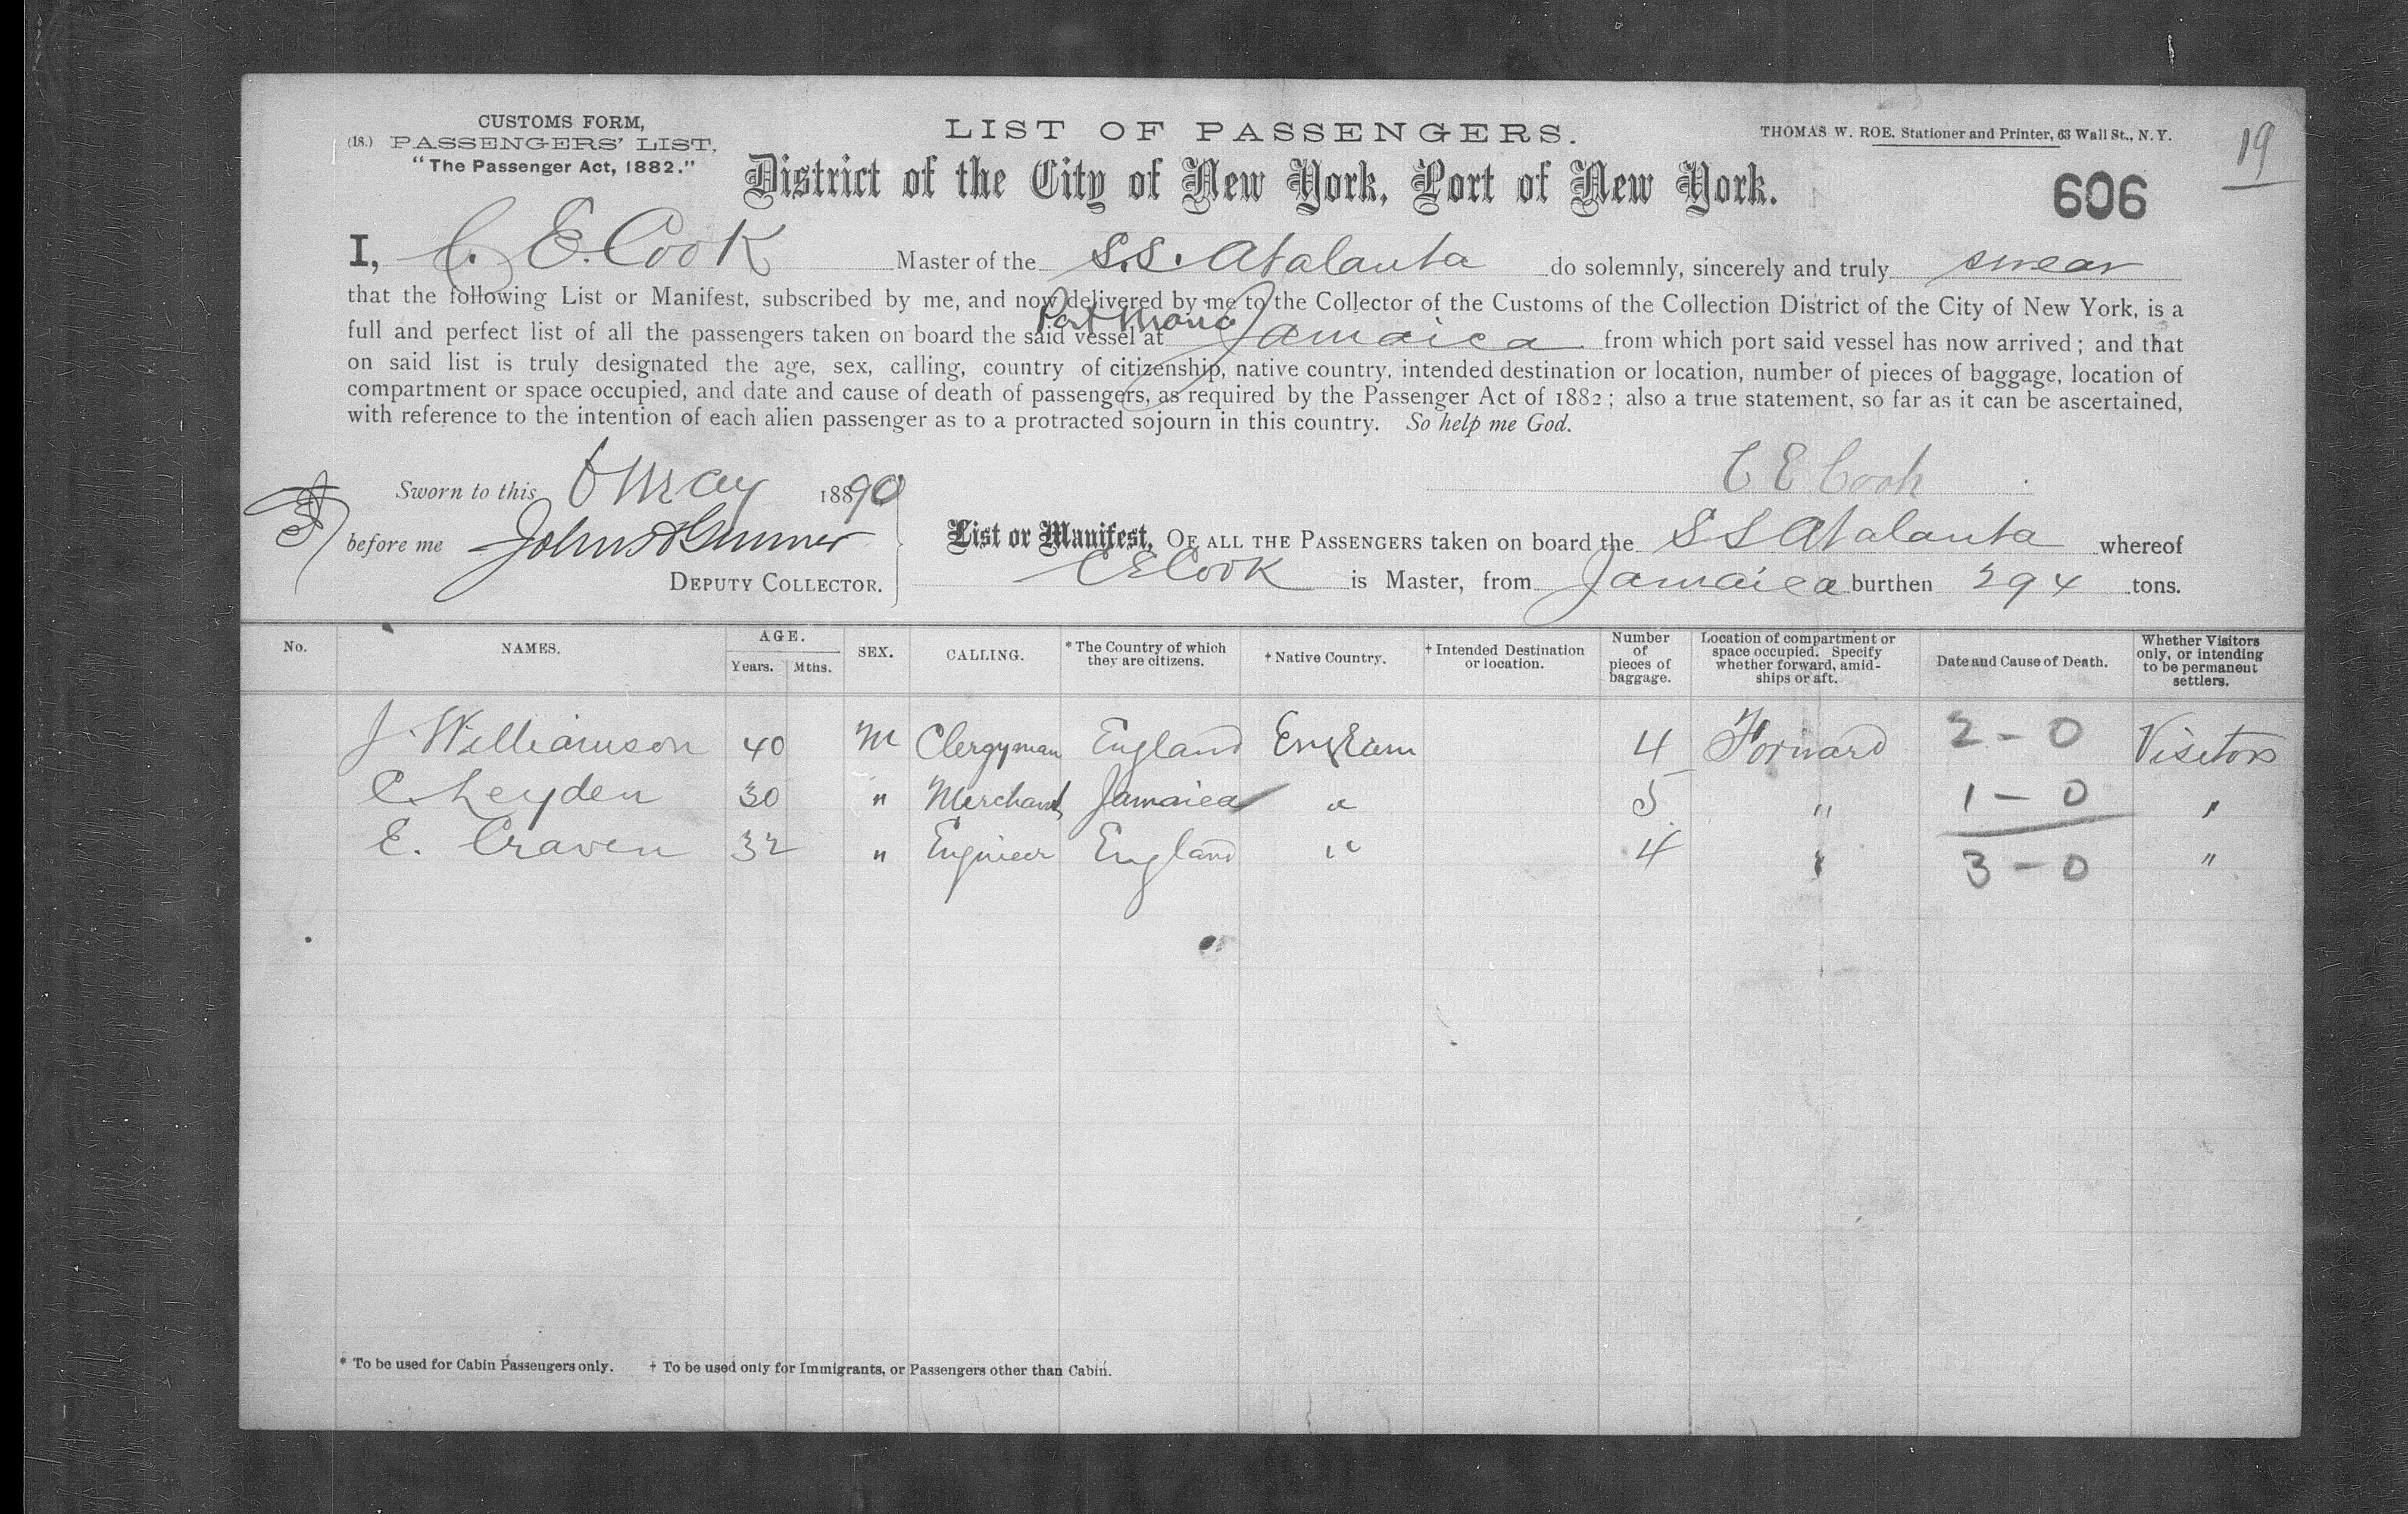 CUSTOMS FORM,
(18.) PASSENGERS' LIST,
"The Passenger Act, 1882."
LIST OF PASSENGERS.
THOMAS W. ROE, Stationer and Printer, 63 Wall St., N. Y.
19
District of the City of New York, Port of New York.
606
I, C. E. Cook Master of the S.S. Atalanta do solemnly, sincerely and truly swear
that the following List or Manifest, subscribed by me, and now delivered by me to the Collector of the Customs of the Collection District of the City of New York, is a
Port Maria
full and perfect list of all the passengers taken on board the said vessel at Jamaica from which port said vessel has now arrived; and that
on said list is truly designated the age, sex, calling, country of citizenship, native country, intended destination or location, number of pieces of baggage, location of
compartment or space occupied, and date and cause of death of passengers, as required by the Passenger Act of 1882; also a true statement, so far as it can be ascertained,
with reference to the intention of each alien passenger as to a protracted sojourn in this country. So help me God.
C E Cook
Sworn to this 6 May 1890
before me John
DEPUTY COLLECTOR.
List or Manifest, OF ALL THE PASSENGERS taken on board the S S Atalanta whereof
C E Cook is Master, from Jamaica burthen 294 tons.
No. NAMES. AGE. Years. Mths. SEX. CALLING. * The Country of which they are citizens. † Native Country. † Intended Destination or location. Number of pieces of baggage. Location of compartment or space occupied. Specify whether forward, amidships or aft. Date and Cause of Death. Whether Visitors only, or intending to be permanent settlers.
J. Williamson 40 M Clergyman England 4 Forward 2 - 0 Visitors
C. Leyden 30 " Merchant Jamaica " 5 " 1 - 0 "
E. Craven 32 " Engineer England " 4 " 3 - 0 "
* To be used for Cabin Passengers only. † To be used only for Immigrants, or Passengers other than Cabin.